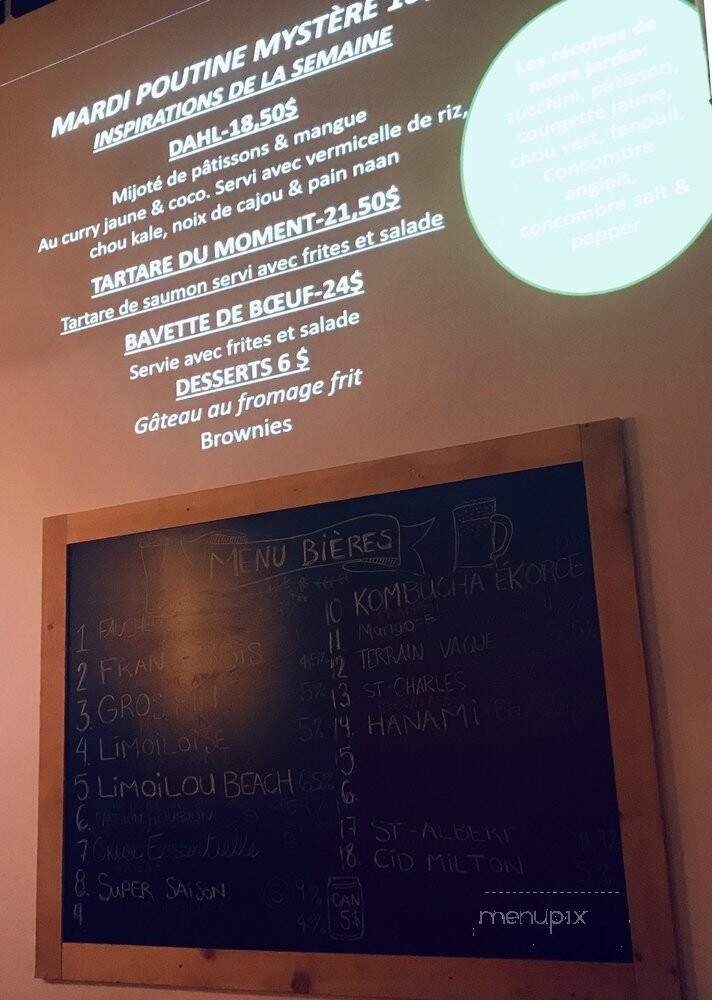 MARDI POUTINE MYSTÈRE
INSPIRATIONS DE LA SEMAINE
DAHL-18,50$
Mijoté de pâtissons & mangue
Au curry jaune & coco. Servi avec vermicelle de riz,
chou kale, noix de cajou & pain naan
TARTARE DU MOMENT-21,50$
Tartare de saumon servi avec frites et salade
BAVETTE DE BŒUF-24$
Servie avec frites et salade
DESSERTS 6 $
Gâteau au fromage frit
Brownies
Les récoltes de
notre jardin:
zucchini, pâtisson,
courgette jaune,
chou vert, fenouil,
Concombre
anglais,
concombre salt &
pepper
MENU BIÈRES
1
2 FRAN
3 GROS
4. LIMOILOISE
5 LIMOILOU BEACH
6.
7
8. SUPER SAISON 9%
9
10 KOMBUCHA EKORCE
11 Mango
12 TERRAIN VAGUE
13 ST-CHARLES
14. HANAMI
15
6.
17 ST-ALBERT
18. CID MILTON
CAN
5$
menupix